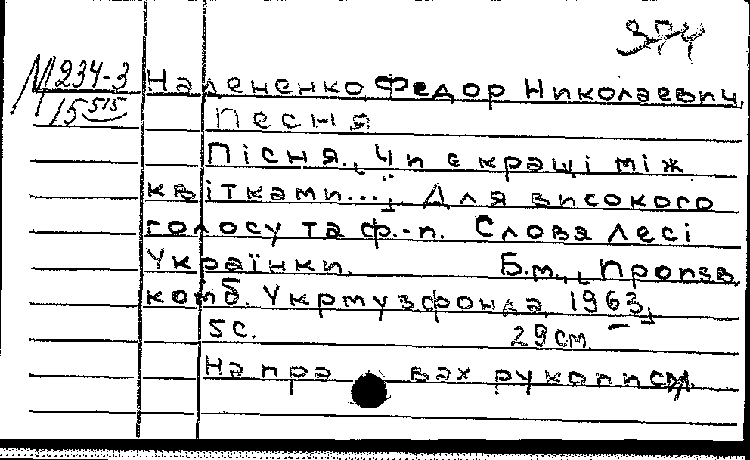 374
М 234-3
15 515
Надененко Федор Николаевич
Песня
Пісня. „Чи є кращі між
квітками..." Для високого
голосу та ф.-п. Слова Лесі
Українки. Б.м., Произв.
комб. Укрмузфонда, 1963.
5 с. 29 см
На правах рукопису.